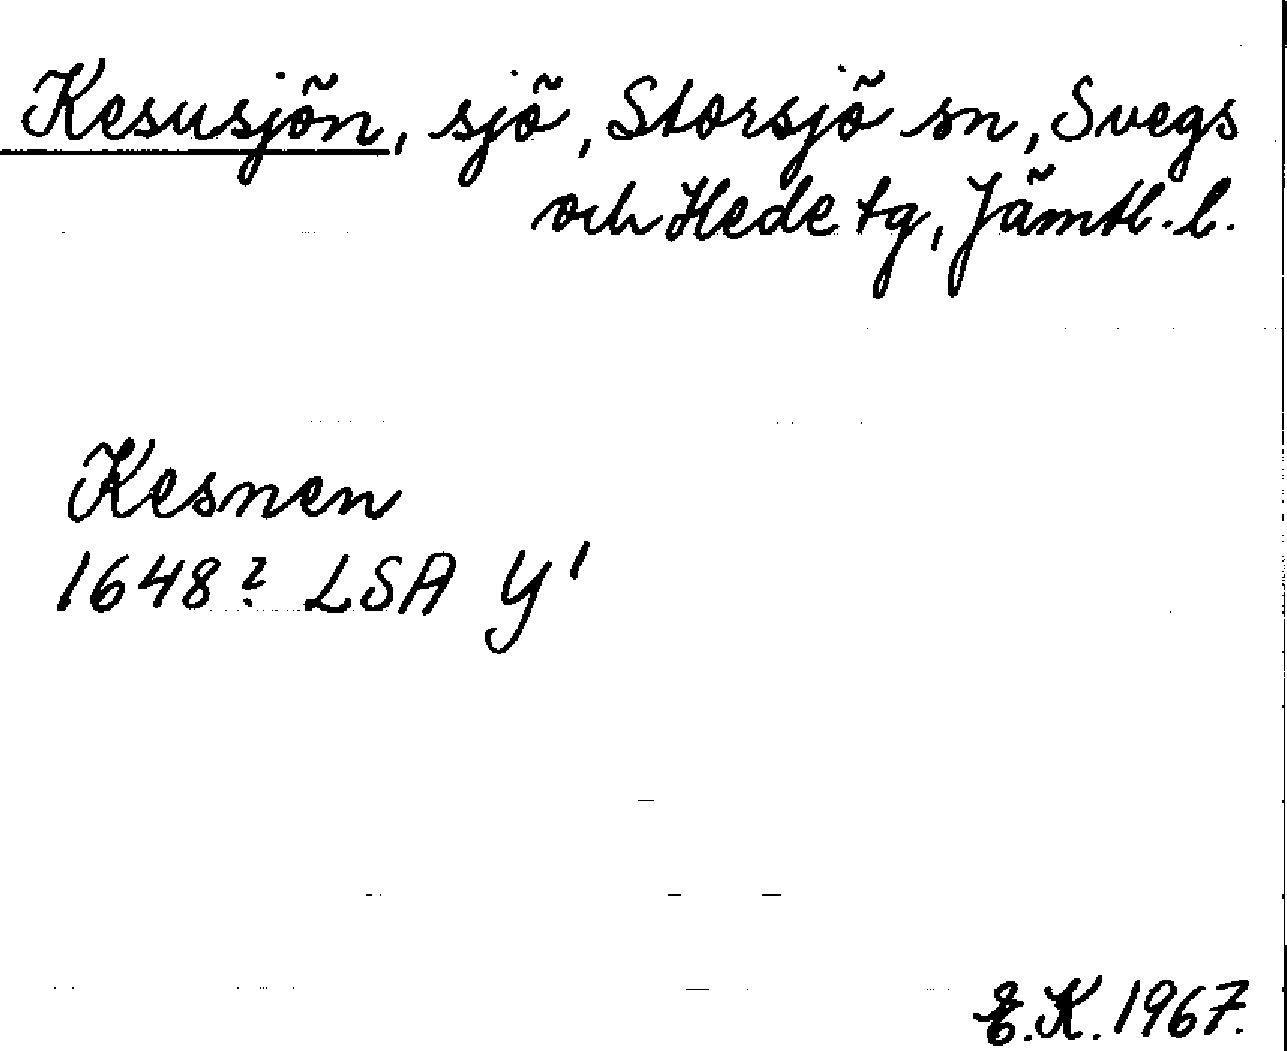 Kesusjön, sjö, Storsjö sn, Svegs
och Hede tg, Jämtl. l.
Kesnen
1648? LSA Y 1
E.K. 1967.